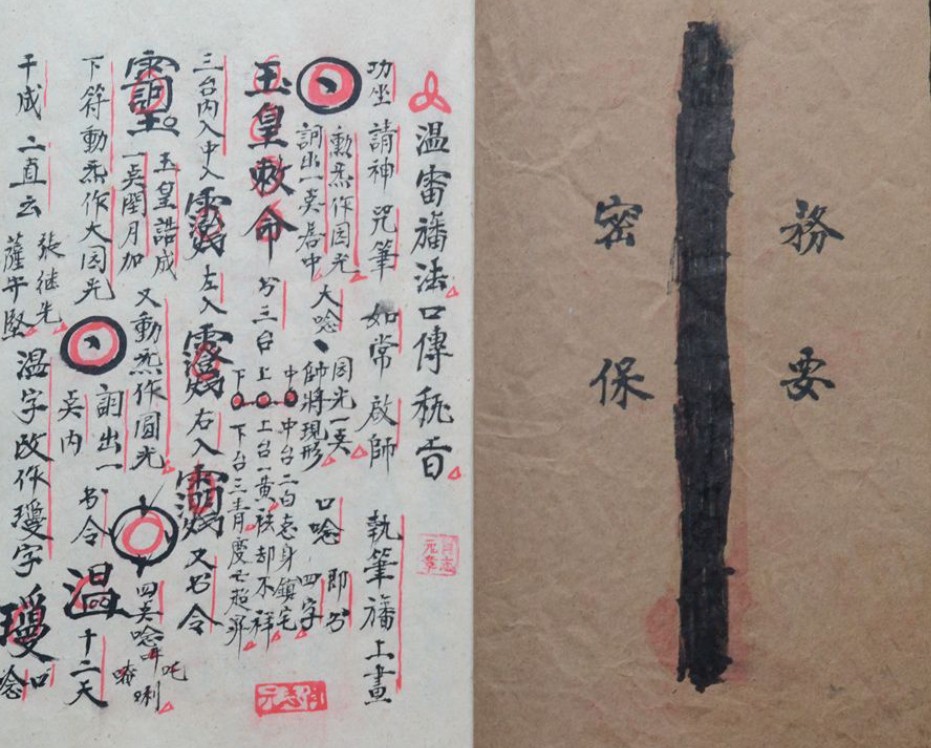 務要
密保
温雷旛法口傳秘旨
功坐請神咒筆如常啟師
執筆旛上畫
動炁作园光
詞出一炁居中
大唸
园光一炁
帥將現形
口唸
四字
即书
玉皇敕命
书三台
中 中台二白 身鎮宅
上 上台一黄祛却不祥
下 下台三青度厄超昇
三台内入中入
左入
右入
又书令
玉皇誥成
一炁閏月加
又動炁作圓光
四炁唸
下符動炁作大园光
詞出一
炁内
书令
温
十二天
千成二直云
張继先
薩守堅
温字改作瓊字
瓊
口唸